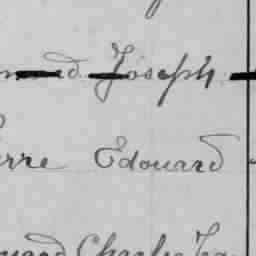 Joseph
erre Edouard
ouard Charles